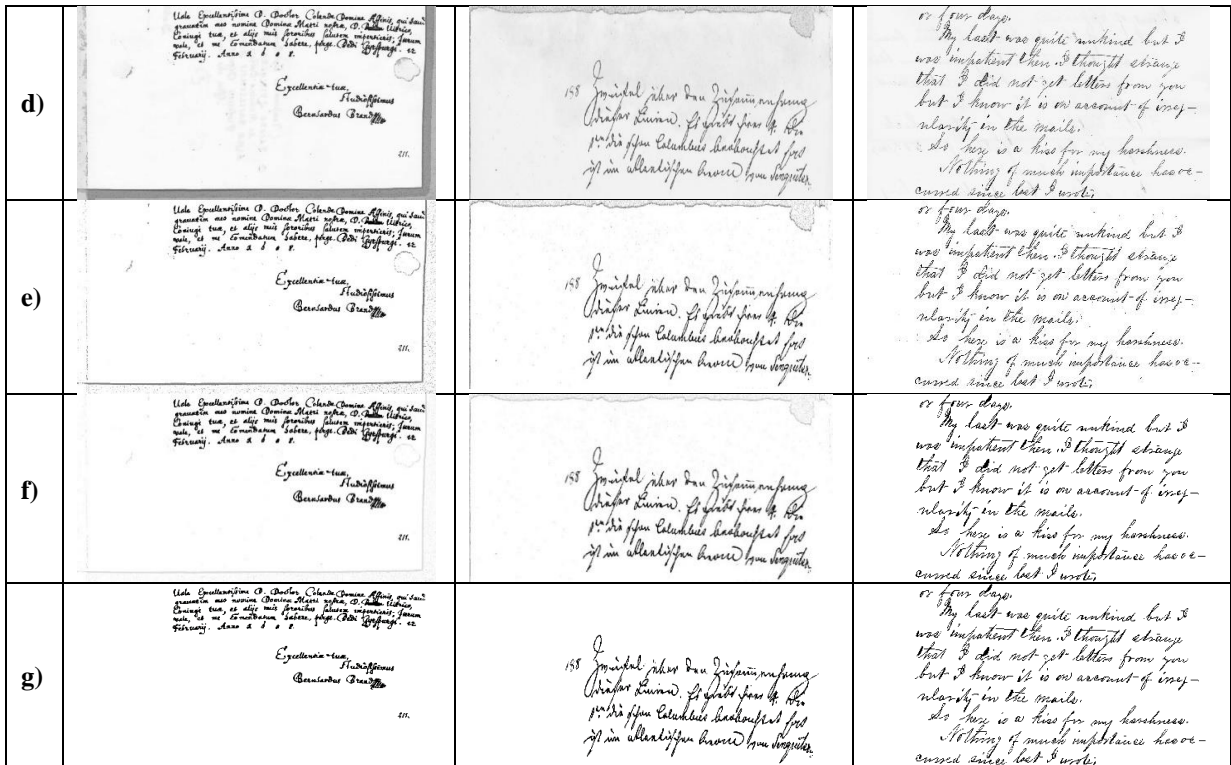 d)
Vale Excellentissime D. Doctor Colende Domine Affinis, qui
meo nomine Domina Matri nostra, D.
Coniugi tuæ, et alijs meis sororibus salutem impertieris; Iterum
vale, et me Comendatum habere, perge. Dedi 12
Februarij. Anno
Excellentiæ tuæ
Studiosissimus
Bernardus Brand
211.
158 Zweifel über den Zusammenhang
dieser Linien. Es giebt hier 4.
die schon Columbus beobachtet hat
ist im atlantischen von
or four days.
My last was quite unkind but I
was impatient then. I thought strange
that I did not get letters from you
but I know it is on account of irreg-
ularity in the mails.
So here is a kiss for my harshness.
Nothing of much importance has oc-
curred since last I wrote,
e)
Vale Excellentissime D. Doctor Colende Domine Affinis, qui
meo nomine Domina Matri nostra, D.
Coniugi tuæ, et alijs meis sororibus salutem impertieris; Iterum
vale, et me Comendatum habere, perge. Dedi 12
Februarij. Anno
Excellentiæ tuæ
Studiosissimus
Bernardus Brand
211.
158 Zweifel über den Zusammenhang
dieser Linien. Es giebt hier 4.
die schon Columbus beobachtet hat
ist im atlantischen von
or four days.
My last was quite unkind but I
was impatient then. I thought strange
that I did not get letters from you
but I know it is on account of irreg-
ularity in the mails.
So here is a kiss for my harshness.
Nothing of much importance has oc-
curred since last I wrote,
f)
Vale Excellentissime D. Doctor Colende Domine Affinis, qui
meo nomine Domina Matri nostra, D.
Coniugi tuæ, et alijs meis sororibus salutem impertieris; Iterum
vale, et me Comendatum habere, perge. Dedi 12
Februarij. Anno
Excellentiæ tuæ
Studiosissimus
Bernardus Brand
211.
158 Zweifel über den Zusammenhang
dieser Linien. Es giebt hier 4.
die schon Columbus beobachtet hat
ist im atlantischen von
or four days.
My last was quite unkind but I
was impatient then. I thought strange
that I did not get letters from you
but I know it is on account of irreg-
ularity in the mails.
So here is a kiss for my harshness.
Nothing of much importance has oc-
curred since last I wrote,
g)
Vale Excellentissime D. Doctor Colende Domine Affinis, qui
meo nomine Domina Matri nostra, D.
Coniugi tuæ, et alijs meis sororibus salutem impertieris; Iterum
vale, et me Comendatum habere, perge. Dedi 12
Februarij. Anno
Excellentiæ tuæ
Studiosissimus
Bernardus Brand
211.
158 Zweifel über den Zusammenhang
dieser Linien. Es giebt hier 4.
die schon Columbus beobachtet hat
ist im atlantischen von
or four days.
My last was quite unkind but I
was impatient then. I thought strange
that I did not get letters from you
but I know it is on account of irreg-
ularity in the mails.
So here is a kiss for my harshness.
Nothing of much importance has oc-
curred since last I wrote,